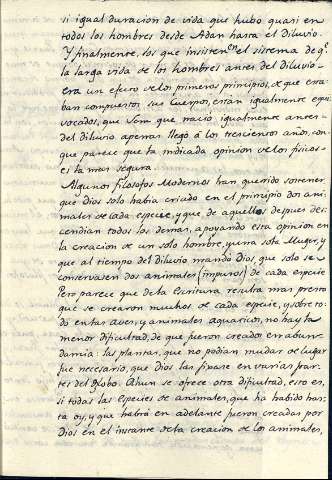 si igual duracion de vida que hubo quasi en
todos los hombres desde Adan hasta el Diluvio.
Y finalmente, los que insisten en el sistema de q.e
la larga vida de los hombres antes del diluvio
era un efecto de los primeros principios, de que esta
ban compuestos sus Cuerpos, están igualmente equi
vocados, que Sem que nació igualmente antes
del diluvio apenas llegó á los trescientos años, con
que parece que la indicada opinion de los fisicos
es la mas segura.
Algunos filosofos Modernos han querido sostener
que dios solo habia criado en el principio dos ani
males de cada especie, y que de aquellos despues des
cendian todos los demas, apoyando esta opinion en
la creacion de un solo hombre, y una sola Muger, y
que al tiempo del Diluvio mandó Dios, que solo se
conservasen dos animales (impuros) de cada especie
Pero parece que de la Escritura resulta mas presto
que se crearon muchos de cada especie, y sobre to
do en las aves, y animales aquaticos, no hay la
menor dificultad, de que fueron creados en abun
dancia: las plantas, que no podian mudar de lugar
fue necesario, que dios las fixase en varias par
tes del globo. Aun se ofrece otra dificultad, esto es,
si todas las especies de animales, que ha habido has
ta oy, y que habrá en adelante fueron creadas por
Dios en el instante de la creacion de los animales,